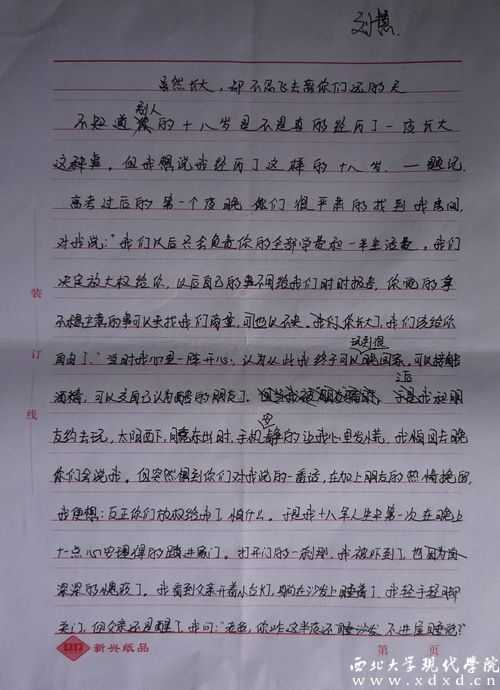 刘慧.
虽然长大,却不愿飞去离你们远的天
别人
不知道的十八岁是不是真的经历了一夜长大
这种事。但我想说我经历了这样的十八岁.—题记.
高考过后的第一个夜晚你们很严肃的找到我房间,
对我说:“我们以后只会负责你的全部学费和一半生活费,我们
决定放大权给你,以后自己的事不用给我们时时报告,你觉的拿
不稳主意的事可以来找我们商量,可也以不来。我们你长大了,我们该给你
自由了.”当时我心里一阵开心,认为从此我终于可以晚回家,可以接触
玩到很
酒精,可以交自己认为酷的朋友了。于是我被朋
友约去玩,太阳西下,月亮东出时,手机静的让我心里发慌,我怕回去晚
你们会说我。但突然想到你们对我说的一番话,在加上朋友的热情挽留,
我便想:反正你们放权给我了怕什么。于是我十八年人生中第一次在晚上
十一点心安理得的踏进家门。打开门的一刹那,我被吓到了,
深深的愧疚了。我看到父亲开着小台灯,躺在沙发上睡着了,我轻手轻脚
关门,但父亲还是醒了,我问:“老爸,你咋这半夜还睡沙发,不进屋睡觉?”
装
订
线
新兴纸品
第 页
西北大学现代学院
www.xdxd.cn